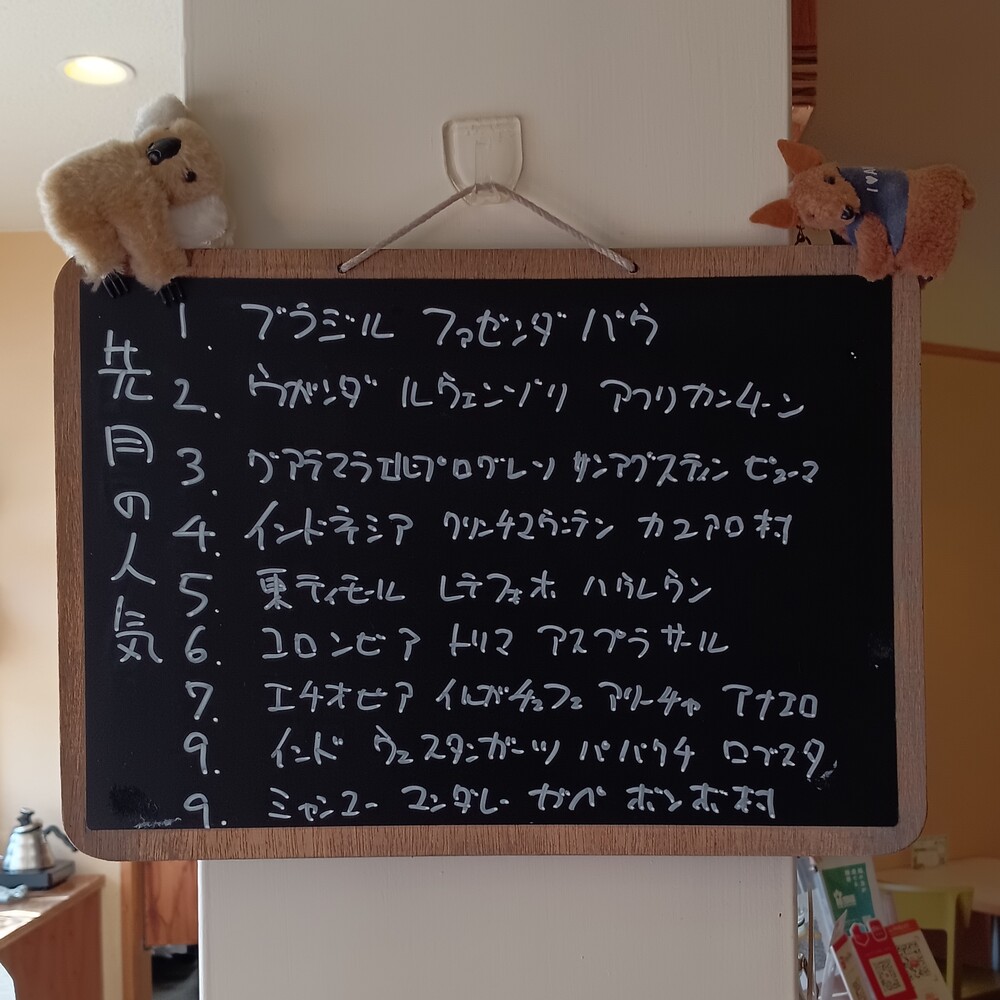 先月の人気
1. ブラジル ファゼンダ バウ
2. ウガンダ ルウェンゾリ アフリカンムーン
3. グアテマラ エルプログレソ サンアグスティン ピューマ
4. インドネシア クリンチマウンテン カユアロ村
5. 東ティモール レテフォホ ハウレウン
6. コロンビア トリマ アスプラサール
7. エチオピア イルガチェフェ アリーチャ アナエロ
9. インド ウェスタンガーツ パパクチ ロブスタ
9. ミャンマー マンダレー ガペ ボンボ村
I ♥ A